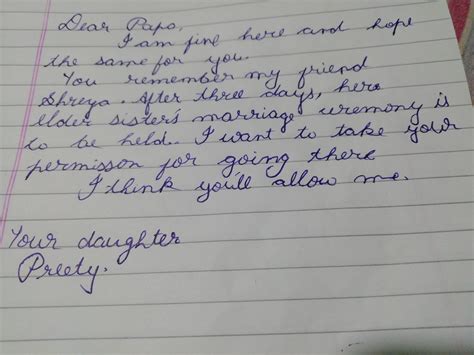 Dear Papa,
I am fine here and hope
the same for you.
You remember my friend
Shreya. After three days, here
elder sister's marriage ceremony is
to be held. I want to take your
permisson for going there
I think you'll allow me.
Your daughter
Preety.